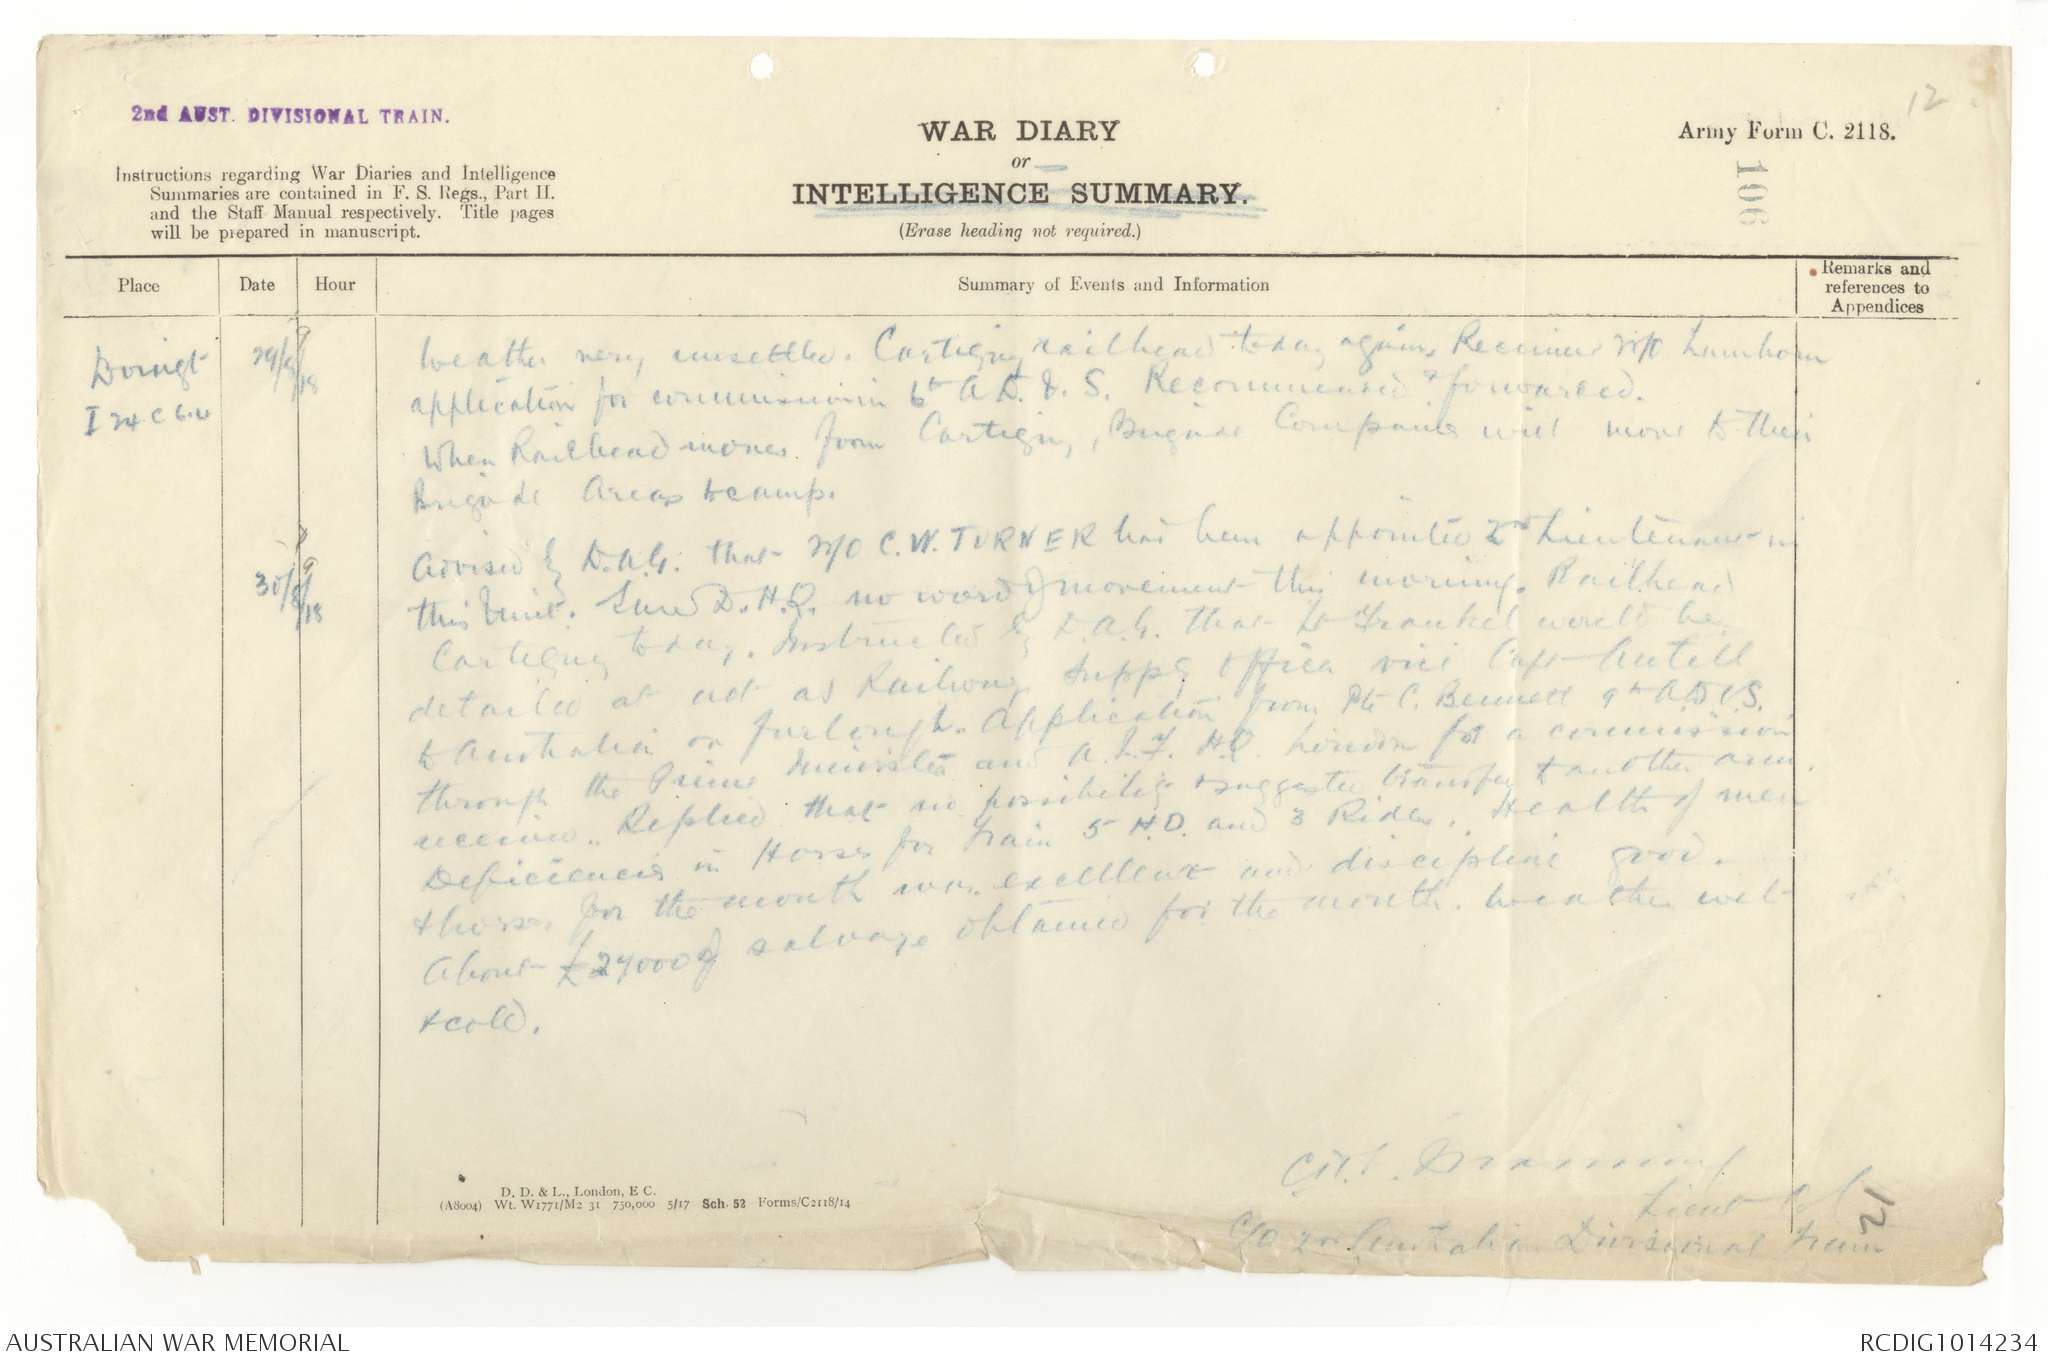 12
2nd AUST. DIVISIONAL TRAIN.
WAR DIARY
or
INTELLIGENCE SUMMARY.
(Erase heading not required.)
Army Form C. 2118.
106
Instructions regarding War Diaries and Intelligence
Summaries are contained in F. S. Regs., Part II.
and the Staff Manual respectively. Title pages
will be prepared in manuscript.
Place
Date
Hour
Summary of Events and Information
Remarks and
references to
Appendices
Doingt
I 24 c 6.4
29/9/18
Weather very unsettled. Cartigny railhead today again. Received
application for commission in 6th A D. V. S. Recommended & forwarded.
When Railhead moves from Cartigny, Brigade Companies will move to their
Brigade Areas to camp.
30/9/18
Advised by D.A.G. that C. W. TURNER had been appointed 2nd Lieutenant in
this Unit. D.H.Q. no word of movement this morning. Railhead
Cartigny today. Instructed by D.A.G. that Lt Frankel would be
detailed at act as Railway Supply Officer vice Capt
to Australia on furlough. Application from Pte C. Bennett 9th
through the Prime Minister and A.I.F. H.Q. London for a commission
received. Replied that no possibility & suggested transfer to another arm.
Deficiencies in Horses for Train 5 H.D. and 3 Riders. Health of men
& horses for the month was excellent and discipline good.
About £27000 of salvage obtained for the month. Weather wet
& cold.
Manning
Lieut Col
C/O 2nd Australian Divisional Train
12
D. D. & L., London, E C.
(A8004) Wt. W1771/M2 31 750,000 5/17 Sch. 52 Forms/C2118/14
AUSTRALIAN WAR MEMORIAL
RCDIG1014234